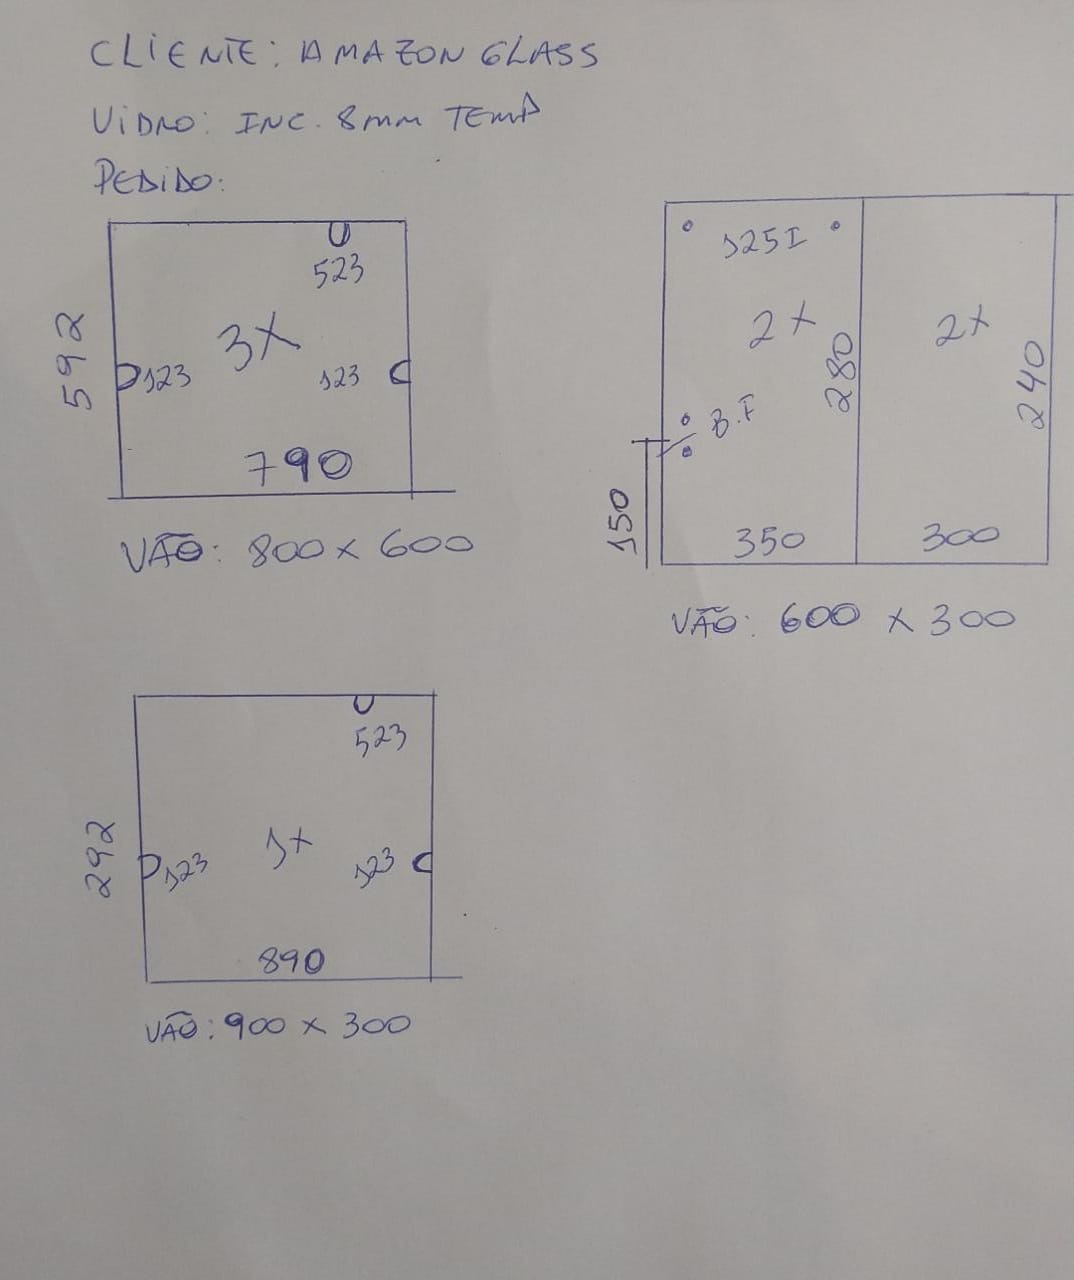 CLIENTE: AMAZON GLASS
VIDRO: INC. 8MM TEMP
PEDIDO:
523
592
3X
123
123
790
VÃO: 800 X 600
125I
2X
280
2X
240
B.F
150
350
300
VÃO: 600 X 300
523
292
1X
123
123
890
VÃO: 900 X 300